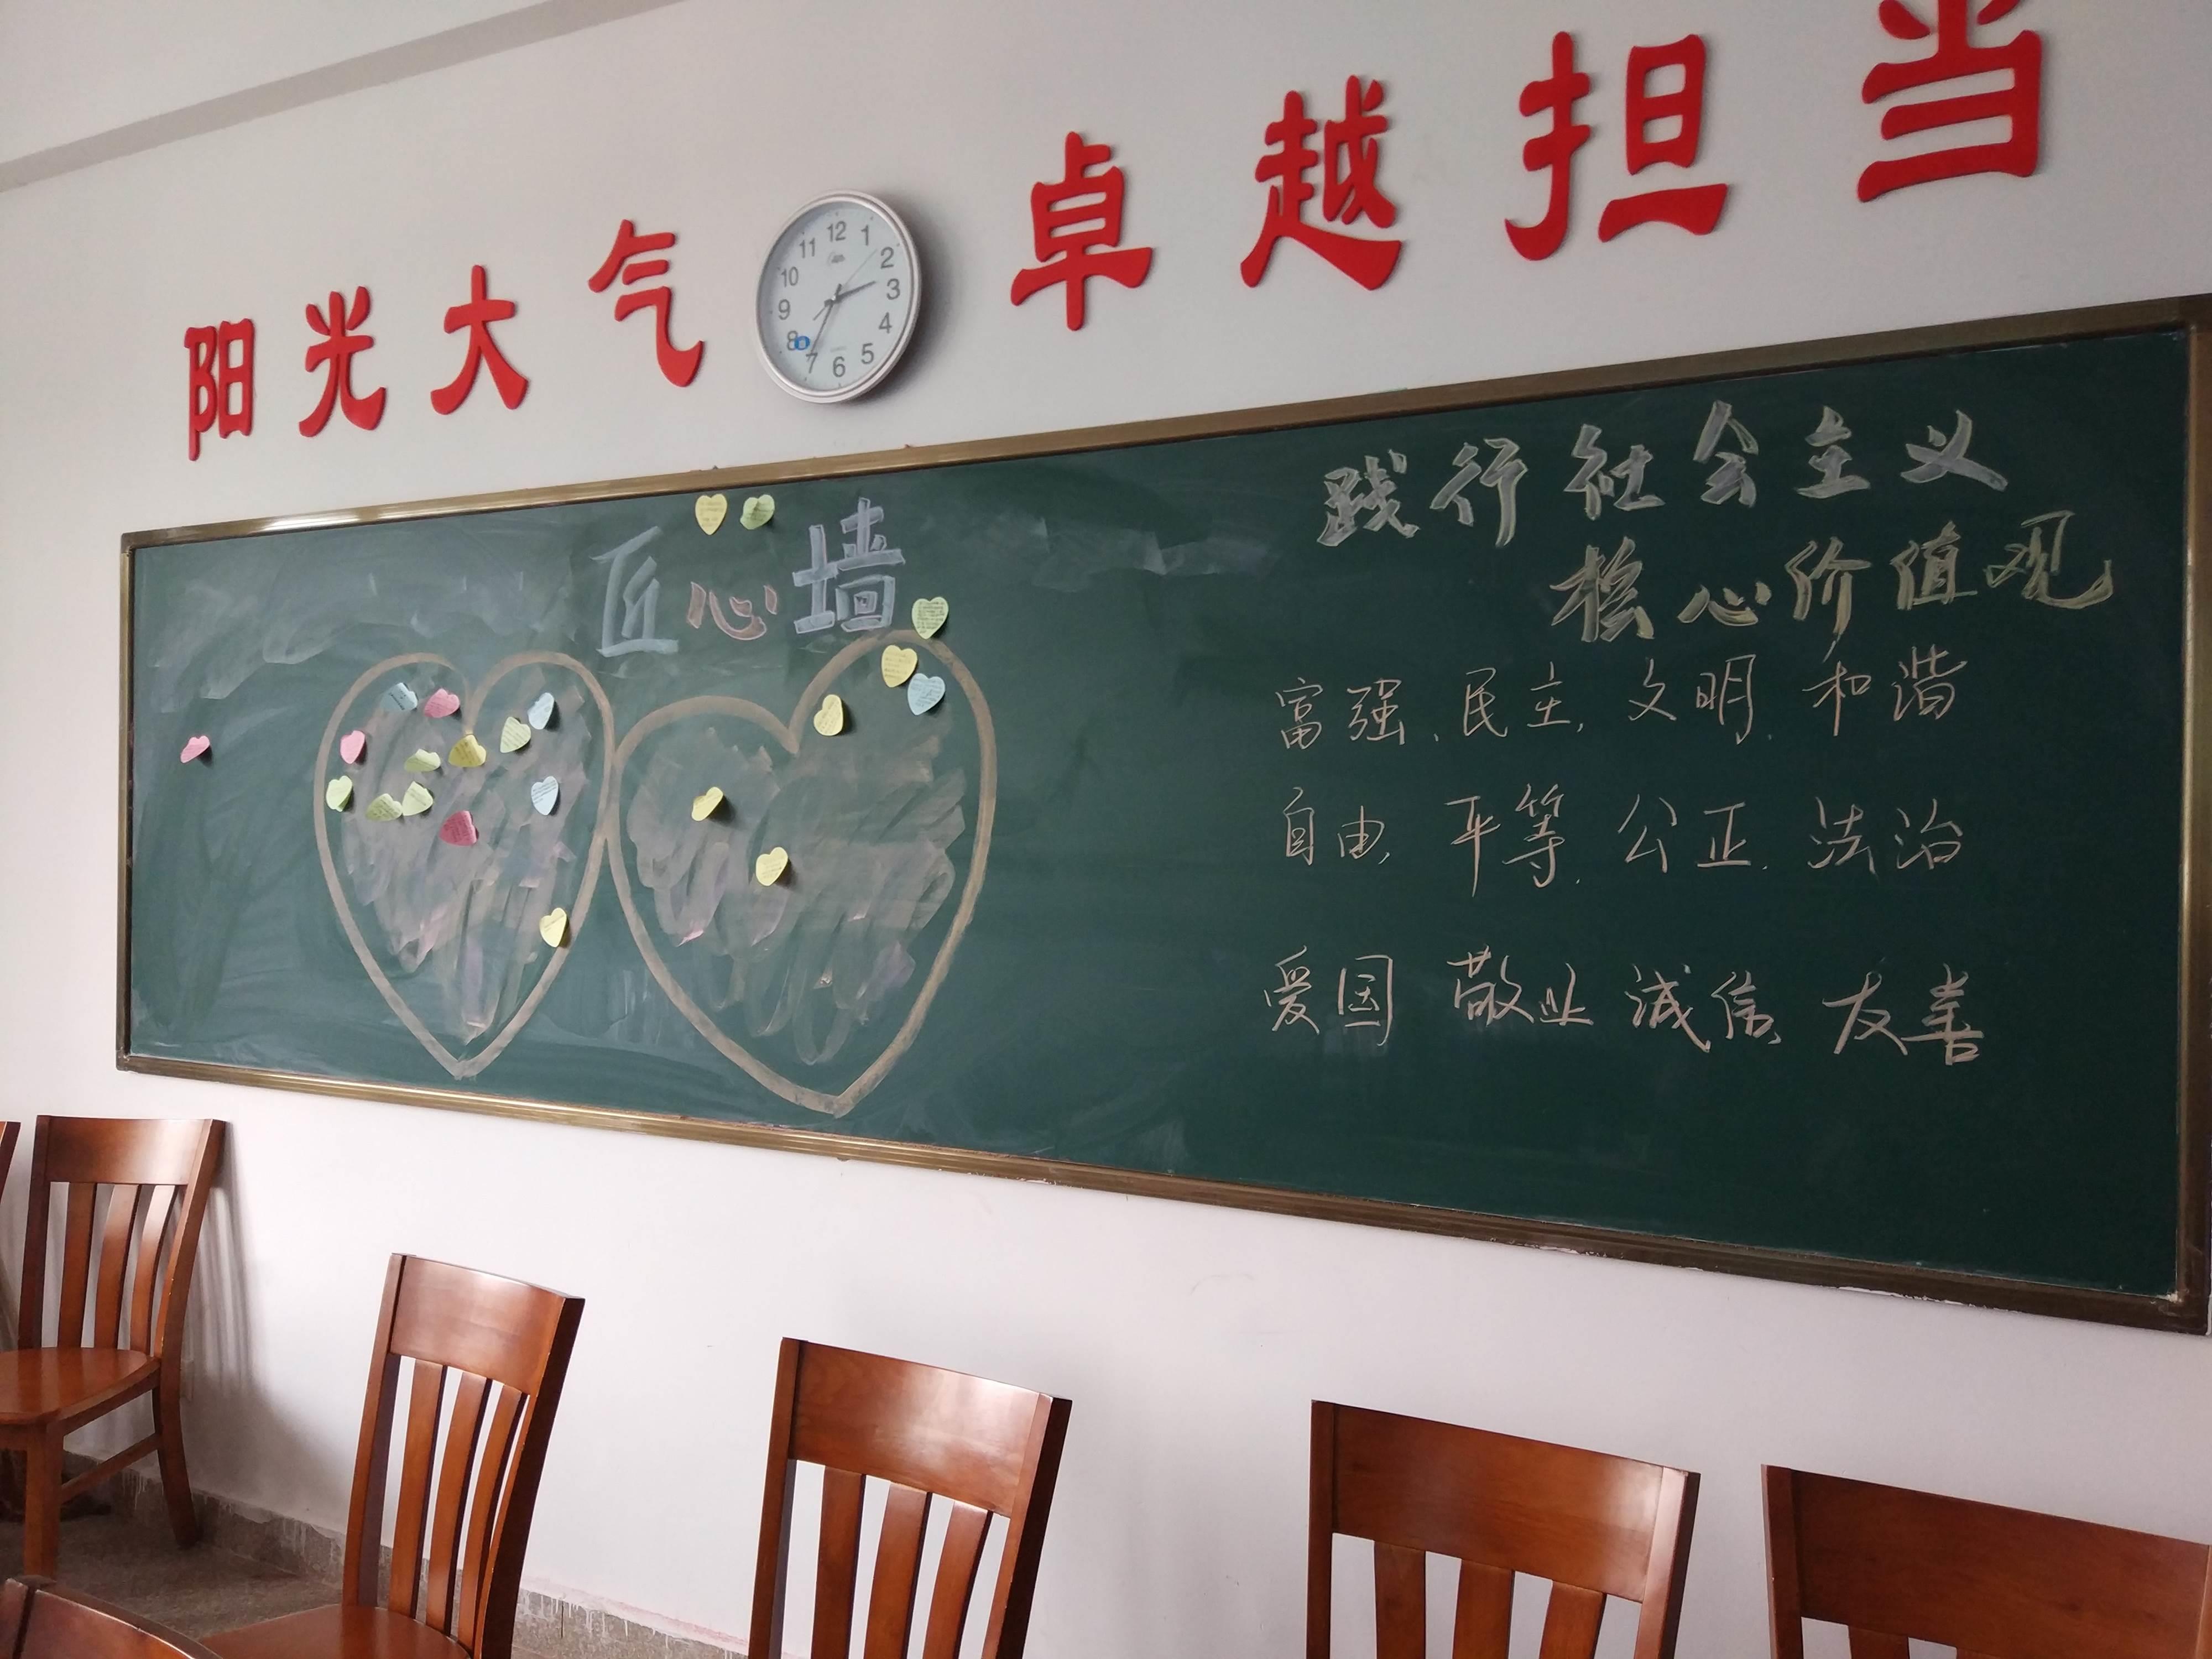 阳光大气 卓越担当
12
1
2
3
4
5
6
7
8
9
10
11
匠心墙
践行社会主义
核心价值观
富强、民主、文明、和谐
自由、平等、公正、法治
爱国 敬业 诚信、友善